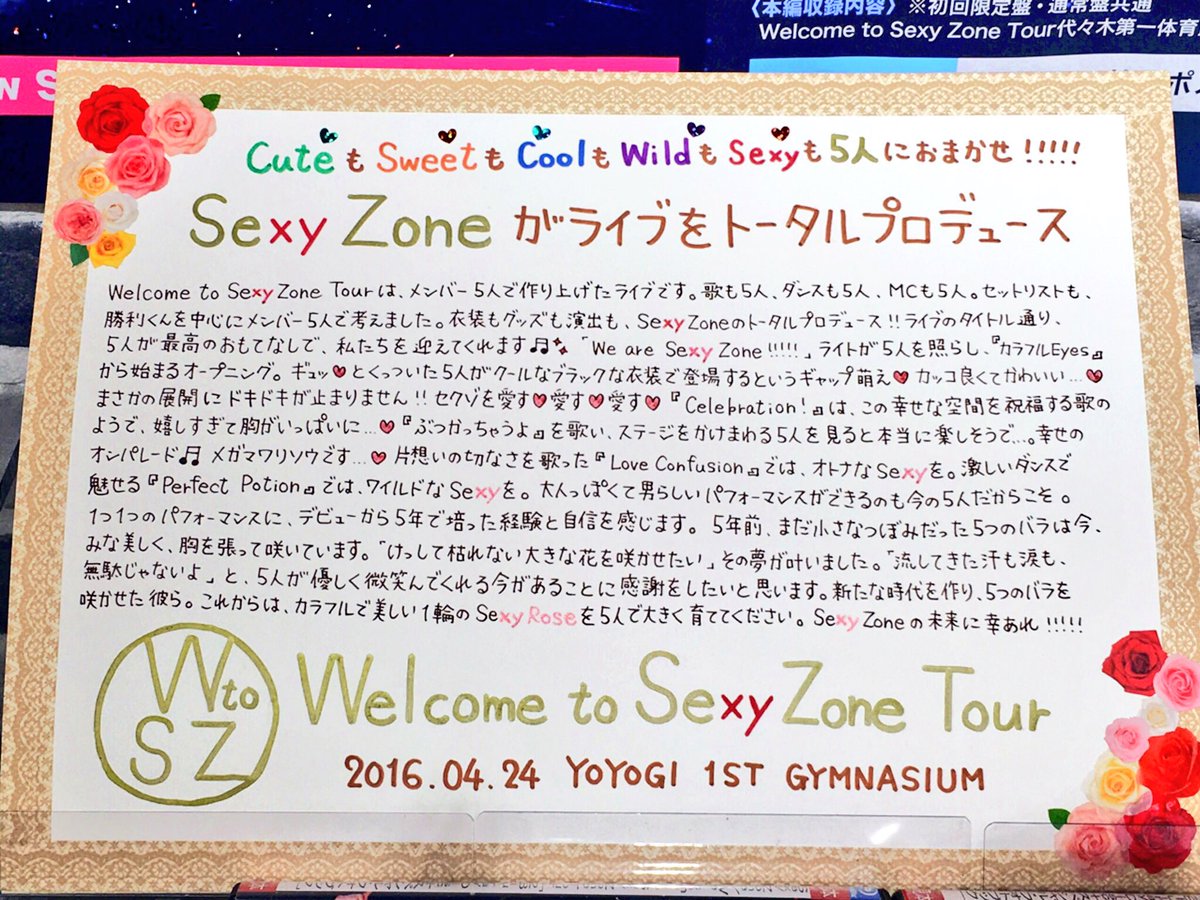 〈本編収録内容〉※初回限定盤・通常盤共通
Welcome to Sexy Zone Tour代々木第一体育
Cuteも Sweetも Coolも Wildも Sexyも 5人におまかせ!!!!!
Sexy Zone がライブをトータルプロデュース
Welcome to Sexy Zone Tourは、メンバー5人で作り上げたライブです。歌も5人、ダンスも5人、MCも5人。セットリストも、
勝利くんを中心にメンバー5人で考えました。衣装もグッズも演出も、Sexy Zoneのトータルプロデュース!!ライブのタイトル通り、
5人が最高のおもてなしで、私たちを迎えてくれます♫✨「We are Sexy Zone!!!!!」ライトが5人を照らし、『カラフルEyes』
から始まるオープニング。ギュッ♥とくっついた5人がクールなブラックな衣装で登場するというギャップ萌え♥カッコ良くてかわいい…♥
まさかの展開にドキドキが止まりません!!セクゾを愛す♥愛す♥愛す♥『Celebration!』は、この幸せな空間を祝福する歌の
ようで、嬉しすぎて胸がいっぱいに…♥『ぶつかっちゃうよ』を歌い、ステージをかけまわる5人を見ると本当に楽しそうで…。幸せの
オンパレード♫メガマワリソウです…♥片想いの切なさを歌った『Love Confusion』では、オトナなSexyを。激しいダンスで
魅せる『Perfect Potion』では、ワイルドなSexyを。大人っぽくて男らしいパフォーマンスができるのも今の5人だからこそ。
1つ1つのパフォーマンスに、デビューから5年で培った経験と自信を感じます。5年前、まだ小さなつぼみだった5つのバラは今、
みな美しく、胸を張って咲いています。「けっして枯れない大きな花を咲かせたい」その夢が叶いました。「流してきた汗も涙も、
無駄じゃないよ」と、5人が優しく微笑んでくれる今があることに感謝をしたいと思います。新たな時代を作り、5つのバラを
咲かせた彼ら。これからは、カラフルで美しい1輪のSexy Roseを5人で大きく育ててください。Sexy Zoneの未来に幸あれ!!!!!
W to
SZ
Welcome to Sexy Zone Tour
2016.04.24 YOYOGI 1ST GYMNASIUM